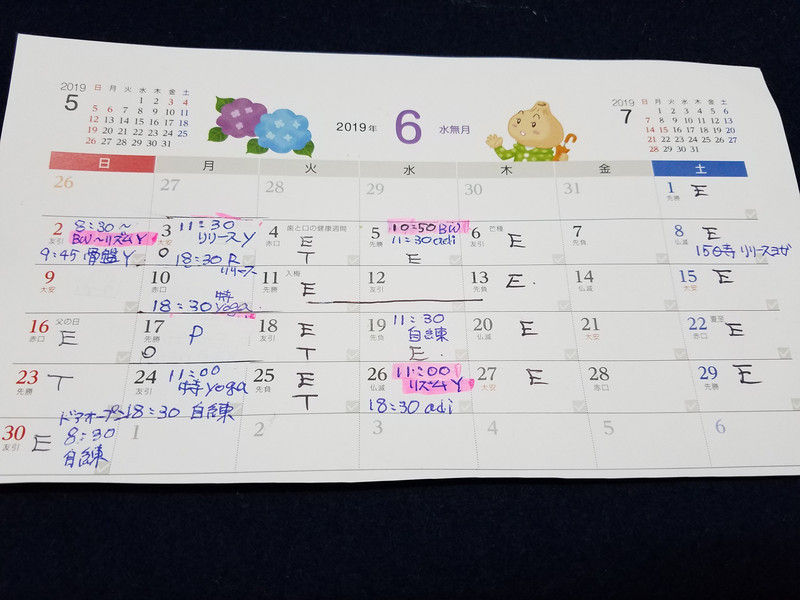 2019
5
日 月 火 水 木 金 土
1 2 3 4
5 6 7 8 9 10 11
12 13 14 15 16 17 18
19 20 21 22 23 24 25
26 27 28 29 30 31
2019年 6 水無月
2019
7
日 月 火 水 木 金 土
1 2 3 4 5 6
7 8 9 10 11 12 13
14 15 16 17 18 19 20
21 22 23 24 25 26 27
28 29 30 31
日 月 火 水 木 金 土
26 27 28 29 30 31
1 先勝 E
2 友引
8:30~
BW~リズムY
9:45 骨盤Y
3 大安
11:30
リリースY
O 18:30 R
リリース
4 赤口 歯と口の健康週間
E
T
5 先勝
10:50 BW
11:30 adi
E
6 友引 芒種
E
7 先負
8 仏滅
E
15:00 リリースヨガ
9 大安
10 赤口
特
18:30 yoga
11 先勝 入梅
E
12 友引
13 先負
E
14 仏滅
15 大安
E
16 赤口 父の日
E
17 先勝
P
O
18 友引
E
T
19 先負
11:30
自練
E
20 仏滅
E
21 大安
22 赤口 夏至
E
23 先勝
T
24 友引
11:00
特yoga
18:30 自練
25 先負
E
T
26 仏滅
11:00
リズムY
18:30 adi
27 大安
E
28 赤口
29 先勝
E
30 友引
E
ドアオープン
8:30
自練
1 2 3 4 5 6